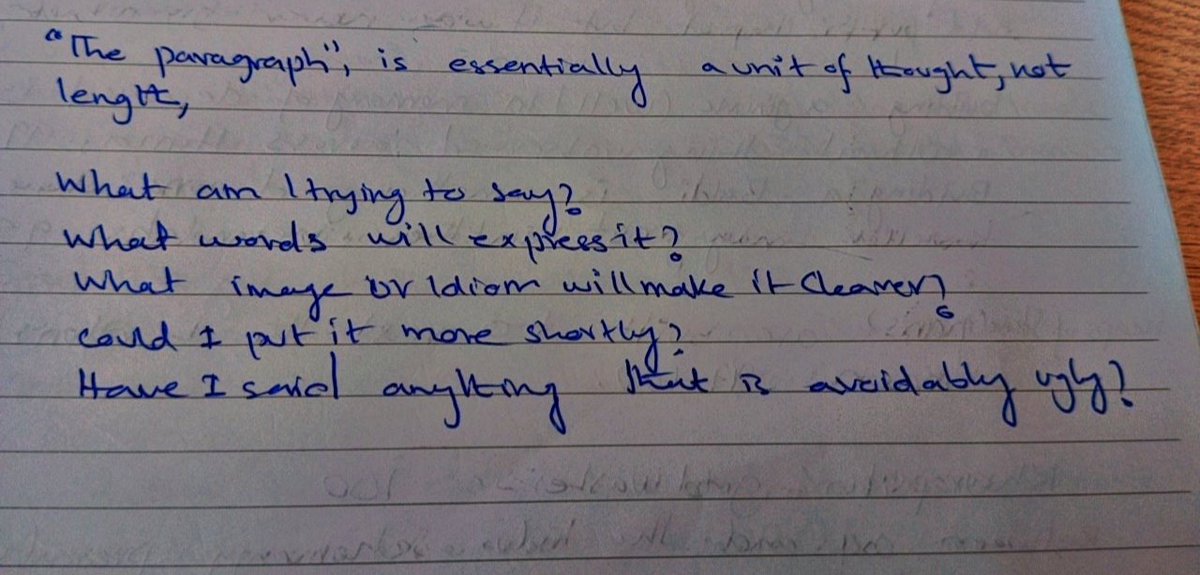 "The paragraph", is essentially a unit of thought, not
length,
What am I trying to say?
What words will express it?
What image or Idiom will make it Clearer?
Could I put it more shortly?
Have I said anything that is avoidably ugly?